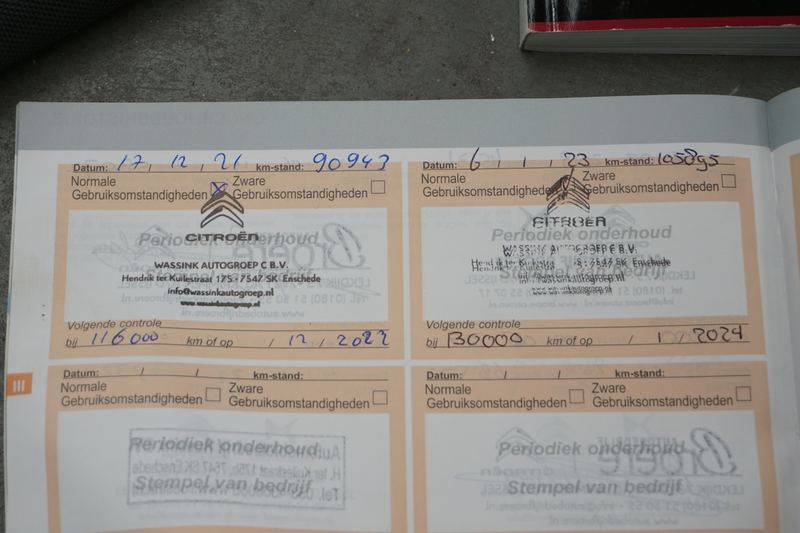 Datum: 17 / 12 / 21 km-stand: 90943
Normale Gebruiksomstandigheden Zware Gebruiksomstandigheden
Periodiek onderhoud
CITROËN
WASSINK AUTOGROEP C B.V.
Hendrik ter Kuilestraat 175 - 7547 SK Enschede
info@wassinkautogroep.nl
www.wassinkautogroep.nl
Stempel van bedrijf
Volgende controle
bij 116000 km of op / 12 / 2022
Datum: 6 / 1 / 23 km-stand: 105895
Normale Gebruiksomstandigheden Zware Gebruiksomstandigheden
CITROËN
Periodiek onderhoud
WASSINK AUTOGROEP B.V.
Hendrik ter Kuilestraat 175 - 7547 SK Enschede
Stempel van bedrijf
Volgende controle
bij 130000 km of op / 1 / 2024
III
Datum: / / km-stand:
Normale Gebruiksomstandigheden Zware Gebruiksomstandigheden
Periodiek onderhoud
Stempel van bedrijf
Datum: / / km-stand:
Normale Gebruiksomstandigheden Zware Gebruiksomstandigheden
Periodiek onderhoud
Stempel van bedrijf